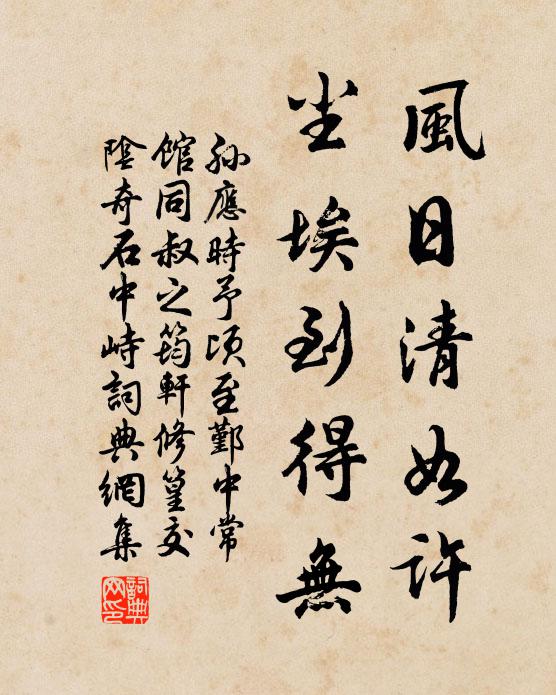 風日清如許
尘埃到得無
孫應時予頃至鄞中常
館同叔之筠軒修篁交
陰奇石中峙詞典網集
詞典网印